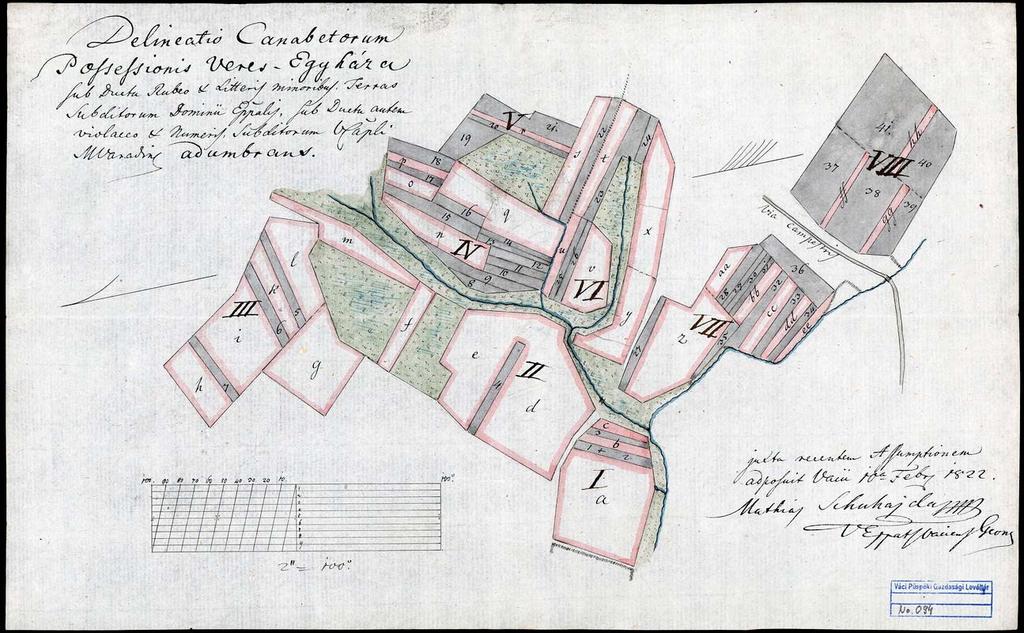 Delineatio Canabetorum
Possessionis Veres-Egyháza
sub Ductu Rubeo & Litteris minoribus, Terras
Subditorum Dominii Eppalis, sub Ductu autem
violaceo & Numeris, Subditorum
adumbrans.
V
20
r
21.
19
p
18
o
17
16
15
n
q
IV
13
14
12
11
10
9
8
s
22
t
20
24
x
u
v
VI
y
m
l
k
5
6
III
i
h
7
g
f
e
4
II
d
c
3
b
1
2
I
a
aa
28
29
bb
36
32
cc
33
dd
34
ee
VII
z
35
27
Via Campestris
41.
hh
40
37
VIII
38
39
ff
gg
100. 90 80 70 60 50 40 30 20 10.
100°
2" = 100°.
juxta recentem Assumptionem
adposuit Vacii 10a Febr 1822.
Mathias Schuhajda
Váci Püspöki Gazdasági Levéltár
No. 094